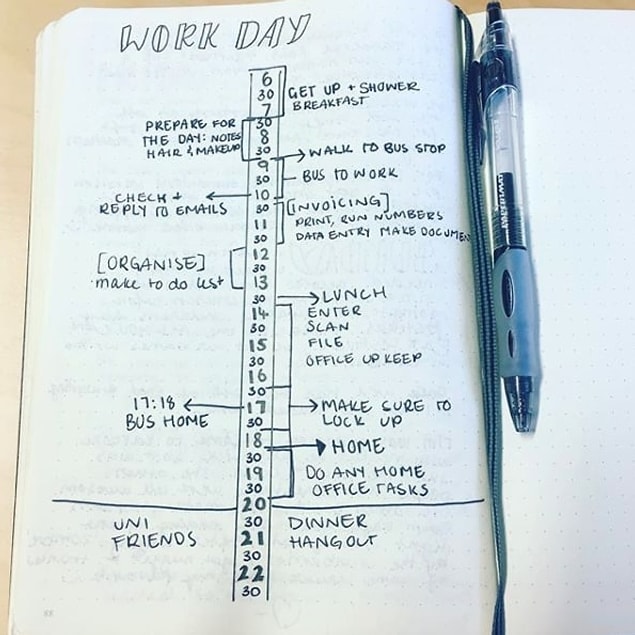 WORK DAY
6
30
GET UP + SHOWER
7
BREAKFAST
30
PREPARE FOR
THE DAY: NOTES
HAIR & MAKEUP
8
30
9
WALK TO BUS STOP
30
BUS TO WORK
10
CHECK +
REPLY TO EMAILS
30
[INVOICING]
PRINT, RUN NUMBERS
11
DATA ENTRY MAKE DOCUMEN
30
12
[ORGANISE]
make to do list
30
13
30
LUNCH
14
ENTER
30
SCAN
15
FILE
30
OFFICE UP KEEP
16
30
17:18
BUS HOME
17
MAKE SURE TO
LOCK UP
30
18
HOME
30
19
DO ANY HOME
OFFICE TASKS
30
20
UNI
FRIENDS
30
DINNER
21
HANGOUT
30
22
30
88